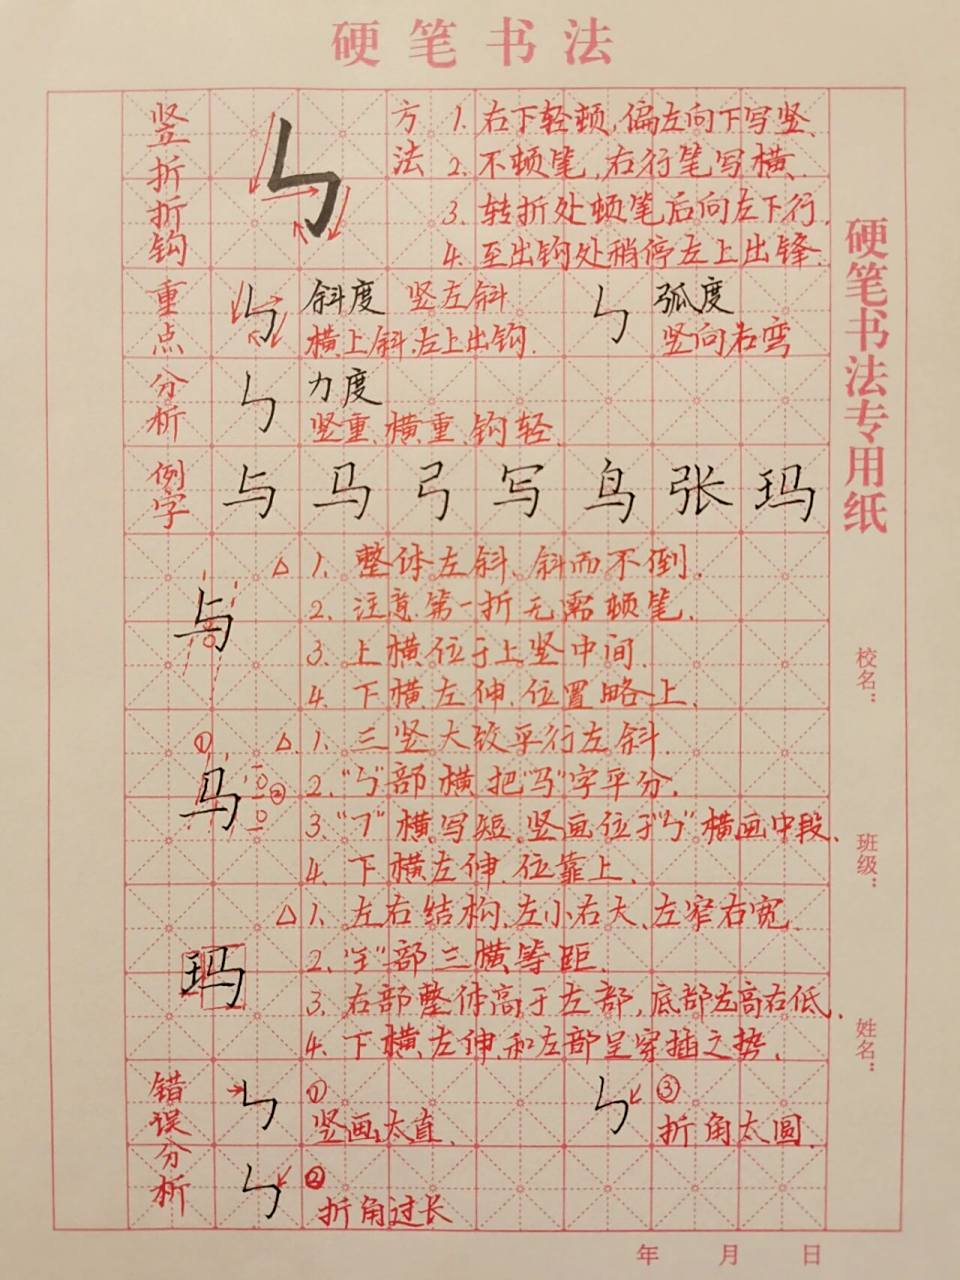 硬笔书法
竖折折钩
方法
1. 右下轻顿,偏左向下写竖、
2. 不顿笔,右行笔写横、
3. 转折处顿笔后向左下行、
4. 至出钩处稍停左上出锋.
重点分析
斜度 竖左斜
横上斜、左上出钩.
弧度
竖向右弯
力度
竖重、横重、钩轻、
例字
与 马 弓 写 鸟 张 玛
与
△ 1. 整体左斜、斜而不倒.
2. 注意第一折无需顿笔.
3. 上横位于上竖中间.
4. 下横左伸、位置略上.
马
① ②
△ 1. 三竖大致平行左斜.
2. "㇉"部横把"马"字平分.
3. "㇕"横写短、竖画位于"㇉"横画中段、
4. 下横左伸、位靠上、
玛
△ 1. 左右结构、左小右大、左窄右宽.
2. "王"部三横等距.
3. 右部整体高于左部,底部左高右低、
4. 下横左伸、和左部呈穿插之势、
错误分析
①
竖画太直、
③
折角太圆.
②
折角过长
硬笔书法专用纸
校名:
班级:
姓名:
年 月 日